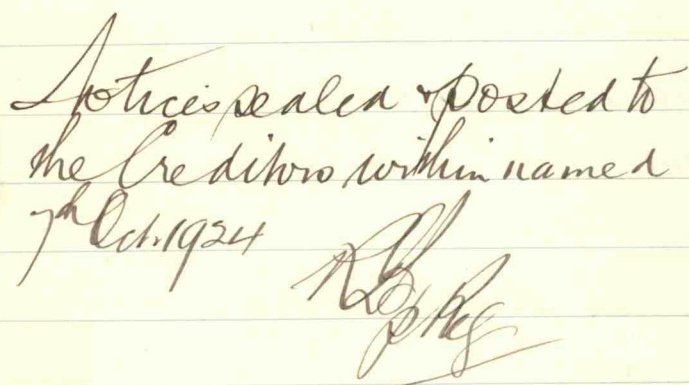 Notices sealed & posted to
the Creditors within named
7th Oct. 1924